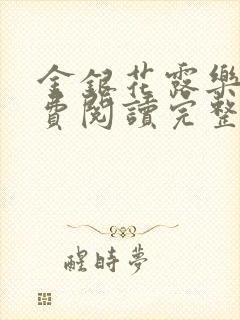 金銀花露樂
費閱讀完整
醒時夢